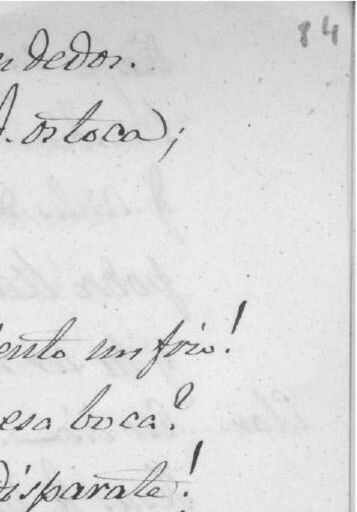 84
dedos.
os toca;
un frio!
esa boca?
disparate!